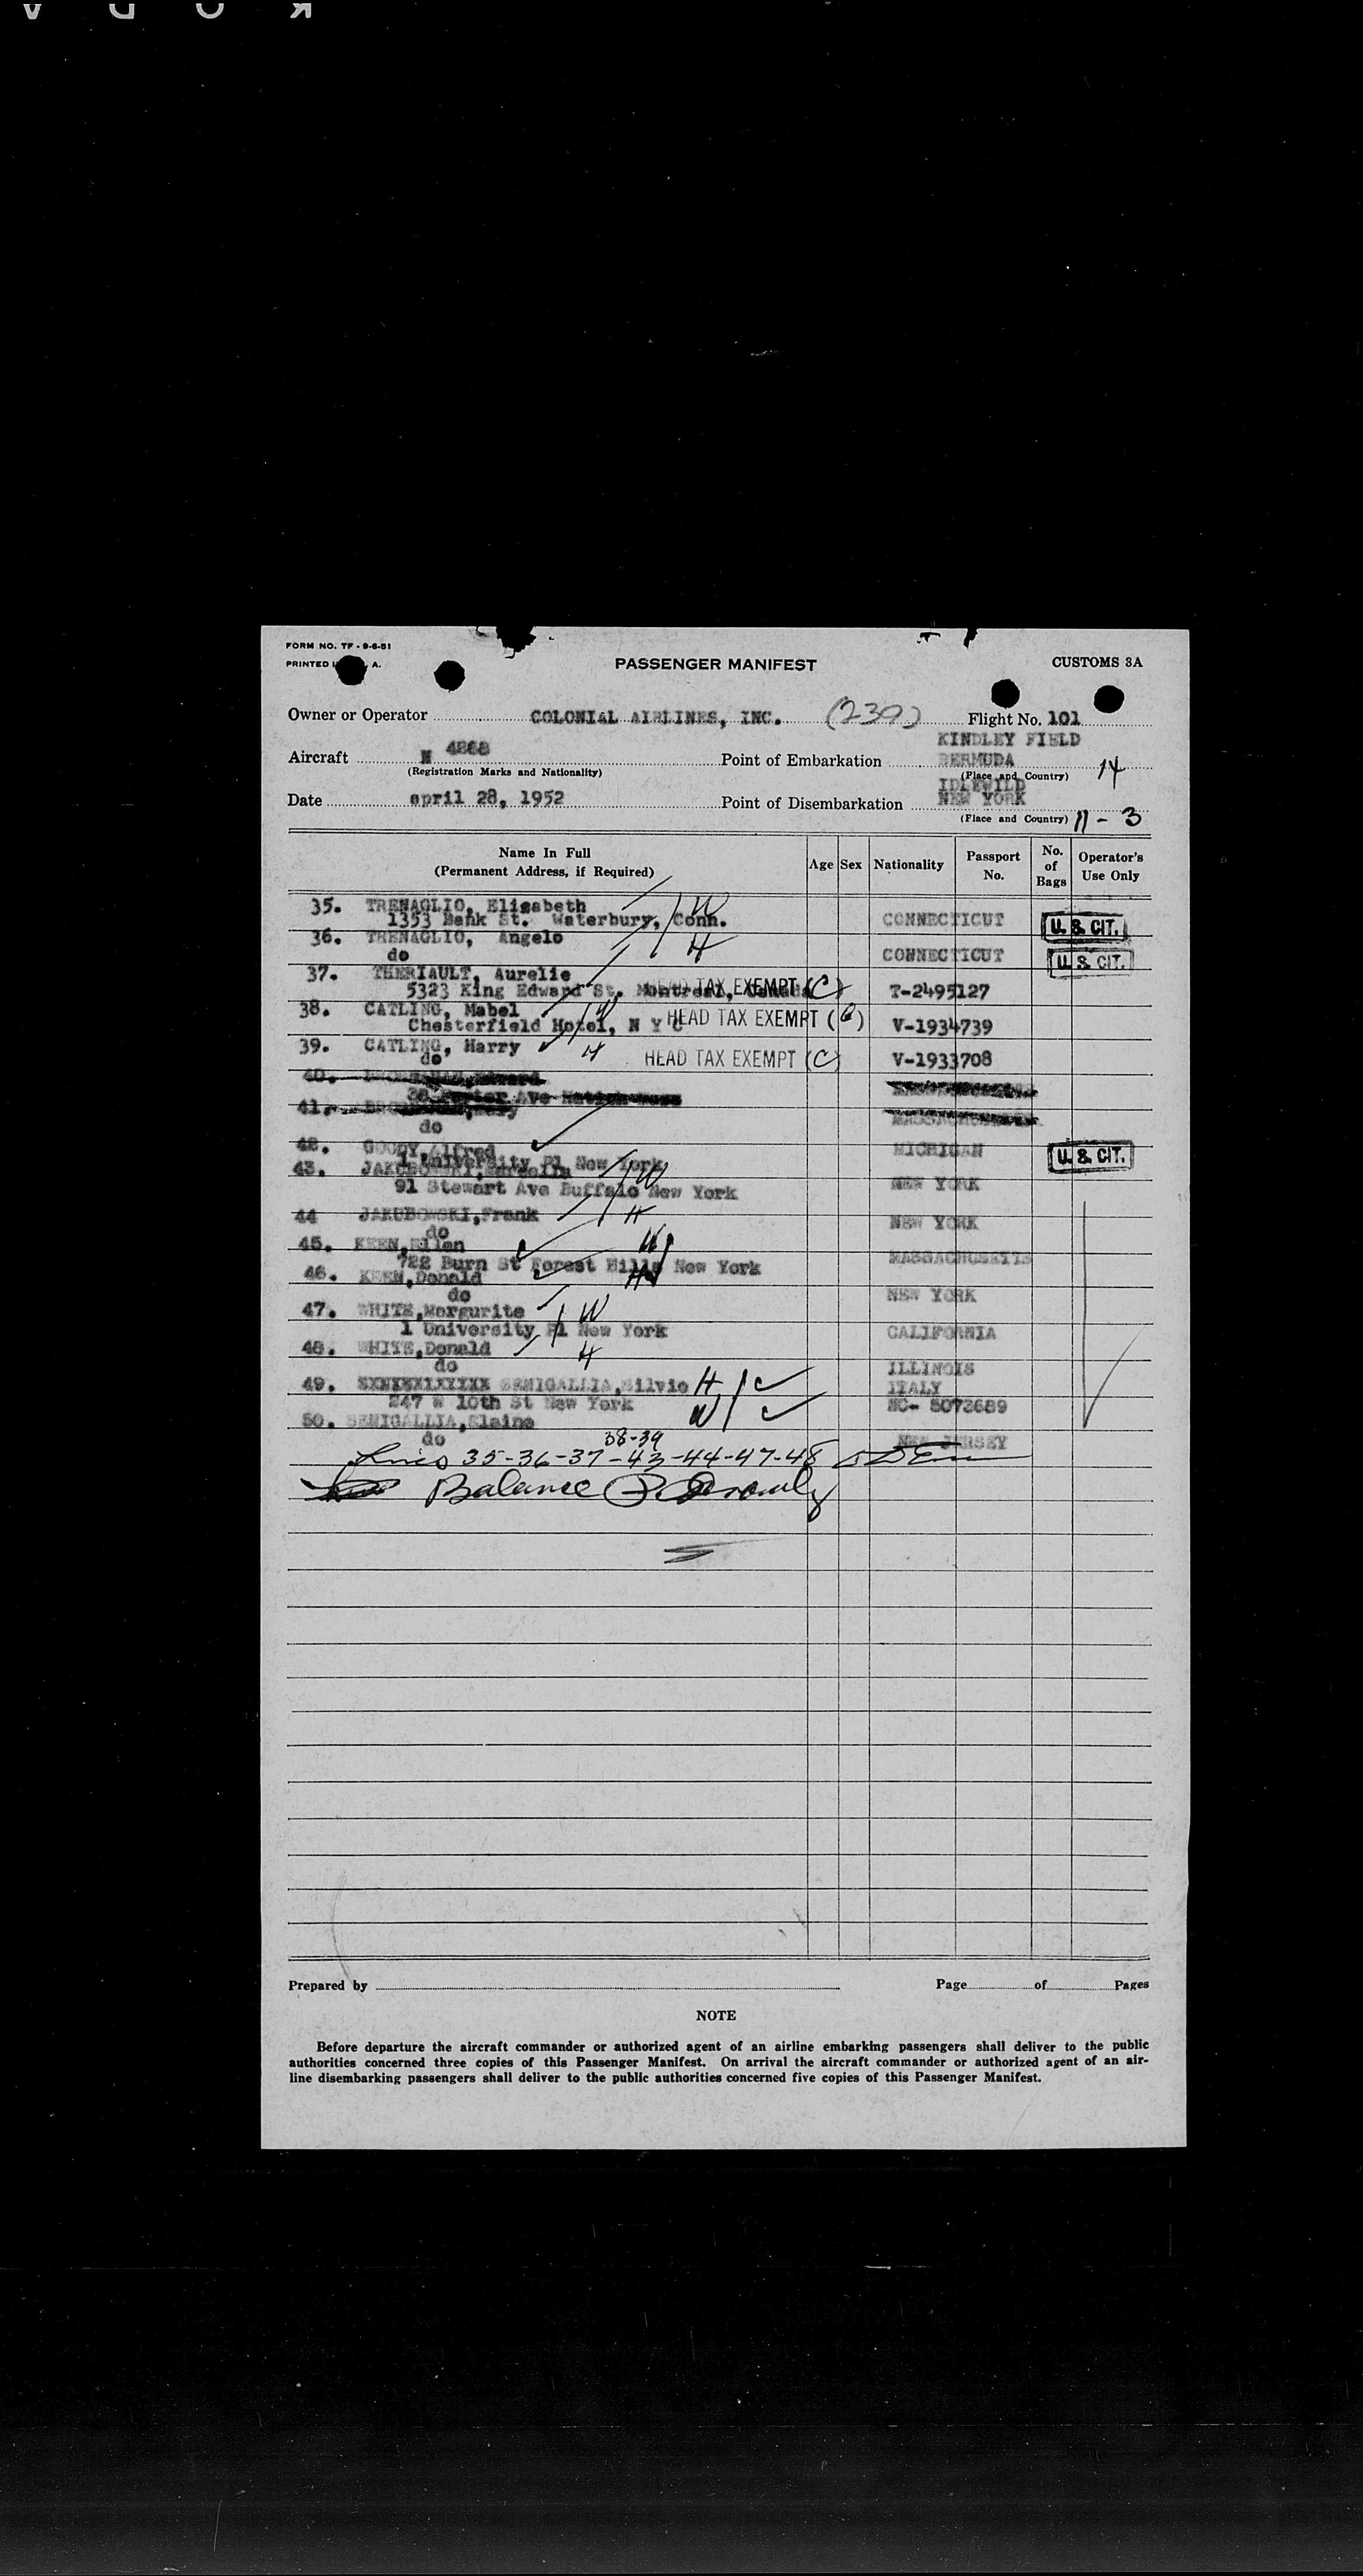 FORM NO. TF - 9-6-51
PRINTED A.
PASSENGER MANIFEST
CUSTOMS 3A
Owner or Operator COLONIAL AIRLINES, INC. (239) Flight No. 101
KINDLEY FIELD
Aircraft N 4868 Point of Embarkation BERMUDA
(Registration Marks and Nationality) (Place and Country) 14
IDLEWILD
Date april 28, 1952 Point of Disembarkation NEW YORK
(Place and Country) 11 - 3
Name In Full
(Permanent Address, if Required) Age Sex Nationality Passport No. No. of Bags Operator's Use Only
35. TRENAGLIO, Elisabeth W
1353 Bank St. Waterbury, Conn. CONNECTICUT U. S. CIT.
36. TRENAGLIO, Angelo H
do CONNECTICUT U. S. CIT.
37. THERIAULT, Aurelie
5323 King Edward St. Montreal, Canada HEAD TAX EXEMPT (C) T-2495127
38. CATLING, Mabel W
Chesterfield Hotel, N Y C HEAD TAX EXEMPT (C) V-1934739
39. CATLING, Harry H
do HEAD TAX EXEMPT (C) V-1933708
40.
41.
do
42. GOODY, Alfred MICHIGAN U. S. CIT.
1 University Pl New York
43. JAKUBOWSKI, W
91 Stewart Ave Buffalo New York NEW YORK
44 JAKUBOWSKI, Frank H
do NEW YORK
45. KEEN, Ellen W
722 Burn St Forest Hills New York MASSACHUSETTS
46. KEEN, Donald H
do NEW YORK
47. WHITE, Margurite W
1 University Pl New York CALIFORNIA
48. WHITE, Donald H
do ILLINOIS
49. SENIGALLIA, Silvio H ITALY
247 W 10th St New York W NC- 5073689
50. SENIGALLIA, Elaine
do NEW JERSEY
38-39
Lines 35-36-37-43-44-47-48
Balance
Prepared by Page of Pages
NOTE
Before departure the aircraft commander or authorized agent of an airline embarking passengers shall deliver to the public
authorities concerned three copies of this Passenger Manifest. On arrival the aircraft commander or authorized agent of an air-
line disembarking passengers shall deliver to the public authorities concerned five copies of this Passenger Manifest.